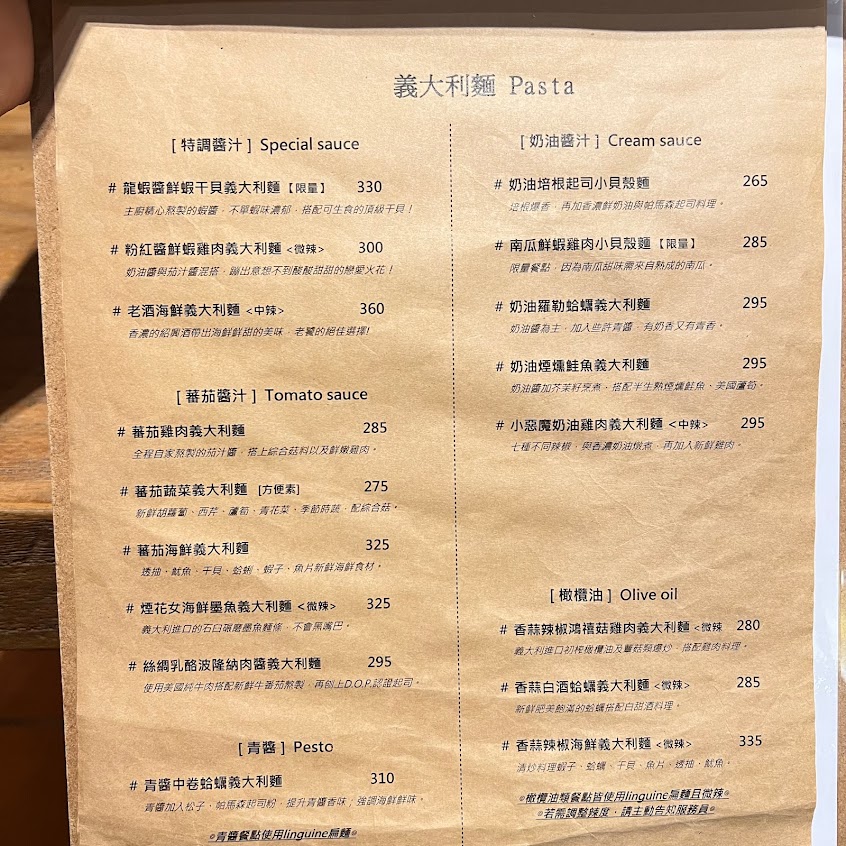 義大利麵 Pasta
[ 特調醬汁 ] Special sauce
# 龍蝦醬鮮蝦干貝義大利麵【限量】 330
主廚精心熬製的蝦醬，不單蝦味濃郁，搭配可生食的頂級干貝！
# 粉紅醬鮮蝦雞肉義大利麵 <微辣> 300
奶油醬與茄汁醬混搭，蹦出意想不到酸酸甜甜的戀愛火花！
# 老酒海鮮義大利麵 <中辣> 360
香濃的紹興酒帶出海鮮鮮甜的美味，老饕的絕佳選擇!
[ 蕃茄醬汁 ] Tomato sauce
# 蕃茄雞肉義大利麵 285
全程自家熬製的茄汁醬，搭上綜合菇料以及鮮嫩雞肉。
# 蕃茄蔬菜義大利麵 [方便素] 275
新鮮胡蘿蔔、西芹、蘆筍、青花菜、季節時蔬，配綜合菇。
# 蕃茄海鮮義大利麵 325
透抽、魷魚、干貝、蛤蜊、蝦子、魚片新鮮海鮮食材。
# 煙花女海鮮墨魚義大利麵 <微辣> 325
義大利進口的石臼碾磨墨魚麵條，不會黑嘴巴。
# 絲綢乳酪波隆納肉醬義大利麵 295
使用美國純牛肉搭配新鮮牛番茄熬製，再刨上D.O.P.認證起司。
[ 青醬 ] Pesto
# 青醬中卷蛤蠣義大利麵 310
青醬加入松子、帕馬森起司粉，提升青醬香味；強調海鮮鮮味。
※青醬餐點使用linguine扁麵※
[ 奶油醬汁 ] Cream sauce
# 奶油培根起司小貝殼麵 265
培根爆香，再加香濃鮮奶油與帕馬森起司料理。
# 南瓜鮮蝦雞肉小貝殼麵【限量】 285
限量餐點，因為南瓜甜味需來自熟成的南瓜。
# 奶油羅勒蛤蠣義大利麵 295
奶油醬為主，加入些許青醬，有奶香又有青香。
# 奶油煙燻鮭魚義大利麵 295
奶油醬加芥茉籽烹煮，搭配半生熟煙燻鮭魚、美國蘆筍。
# 小惡魔奶油雞肉義大利麵 <中辣> 295
七種不同辣椒，與香濃奶油燉煮，再加入新鮮雞肉。
[ 橄欖油 ] Olive oil
# 香蒜辣椒鴻禧菇雞肉義大利麵 <微辣 280
義大利進口初榨橄欖油及蕈菇類慢炒，搭配雞肉料理。
# 香蒜白酒蛤蠣義大利麵 <微辣> 285
新鮮肥美飽滿的蛤蠣搭配白甜酒料理。
# 香蒜辣椒海鮮義大利麵 <微辣> 335
清炒料理蝦子、蛤蠣、干貝、魚片、透抽、魷魚。
※橄欖油類餐點皆使用linguine扁麵且微辣※
※若需調整辣度，請主動告知服務員※